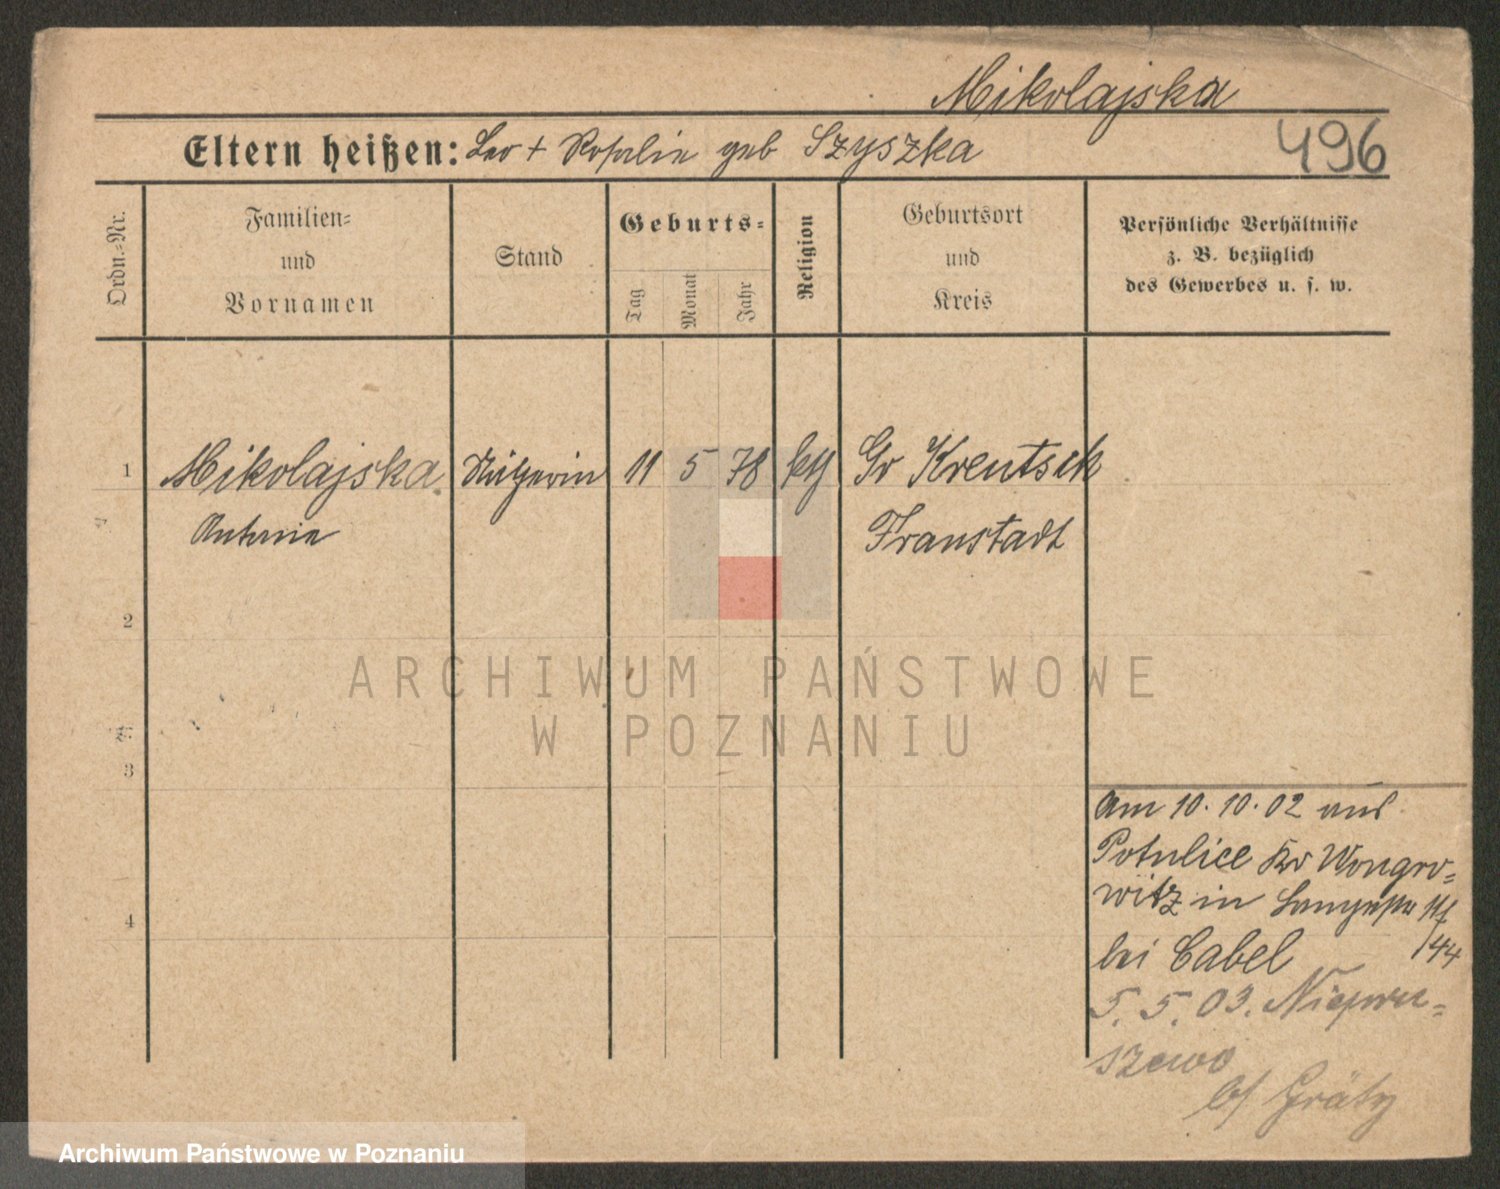 Mikolajska
Eltern heißen: Leo + Rosalie geb Szyszka
496
Ordn.-Nr.
Familien-
und
Vornamen
Stand
Geburts-
Tag
Monat
Jahr
Religion
Geburtsort
und
Kreis
Persönliche Verhältnisse
z. B. bezüglich
des Gewerbes u. s. w.
1 Mikolajska 11 5 78 Gr Kreutsch
Antonie Fraustadt
2
3
4
Am 10. 10. 02 aus
Potulice Kr Wongro-
witz in
bei Cabel 44
5. 5. 03. Niepru-
szewo
b/ Grätz
ARCHIWUM PAŃSTWOWE
W POZNANIU
Archiwum Państwowe w Poznaniu